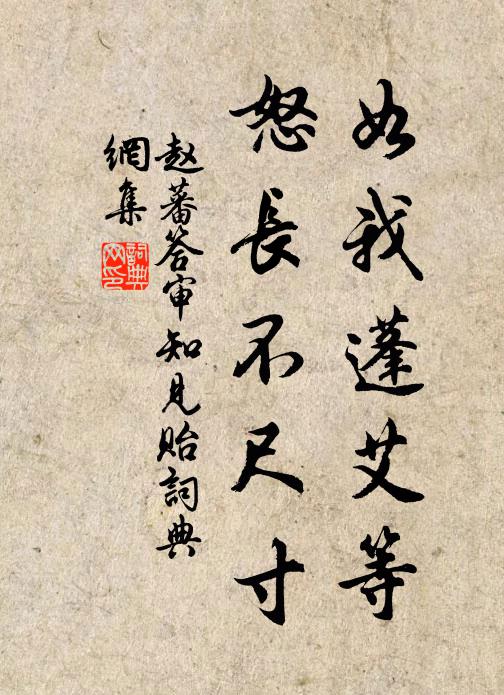 如我蓬艾等
怒長不尺寸
赵蕃答审知見貽詞典
網集
詞典
网印